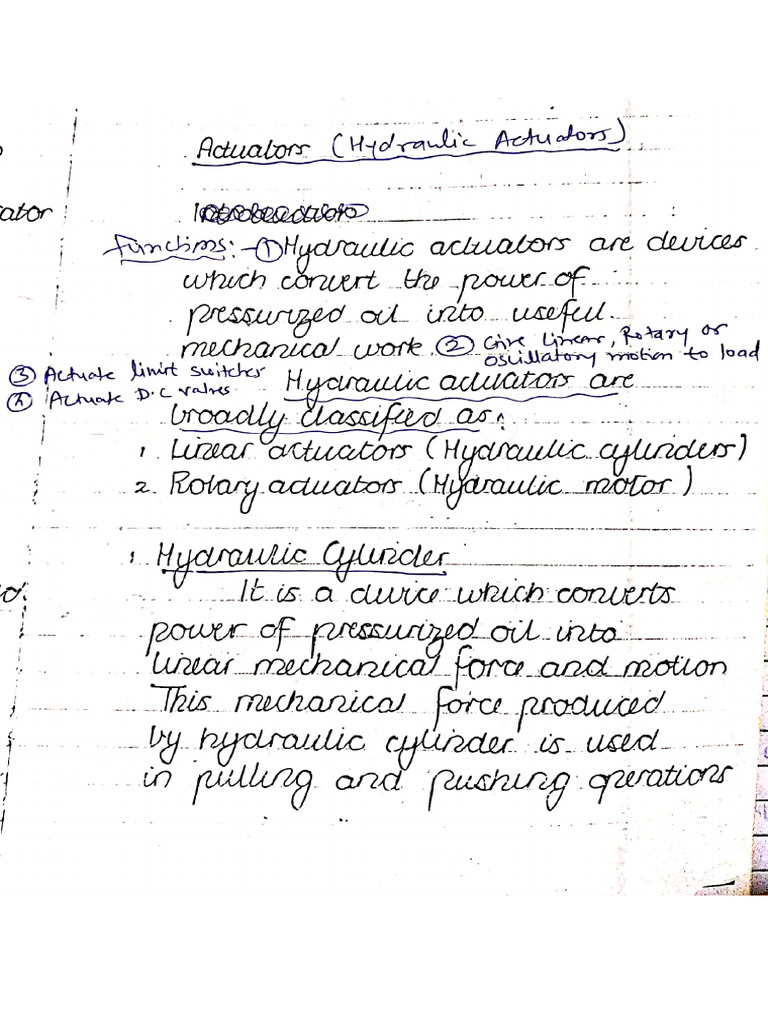 Actuators (Hydraulic Actuators)
ator
Functions:- ① Hydraulic actuators are devices
which convert the power of
pressurized oil into useful
mechanical work ② Give Linear, Rotary or
oscillatory motion to load
③ Actuate limit switches
④ Actuate D.C valves
Hydraulic actuators are
broadly classified as:
1. Linear actuators (Hydraulic cylinders)
2. Rotary actuators (Hydraulic motor)
1. Hydraulic Cylinder
It is a device which converts
power of pressurized oil into
linear mechanical force and motion
This mechanical force produced
by hydraulic cylinder is used
in pulling and pushing operations